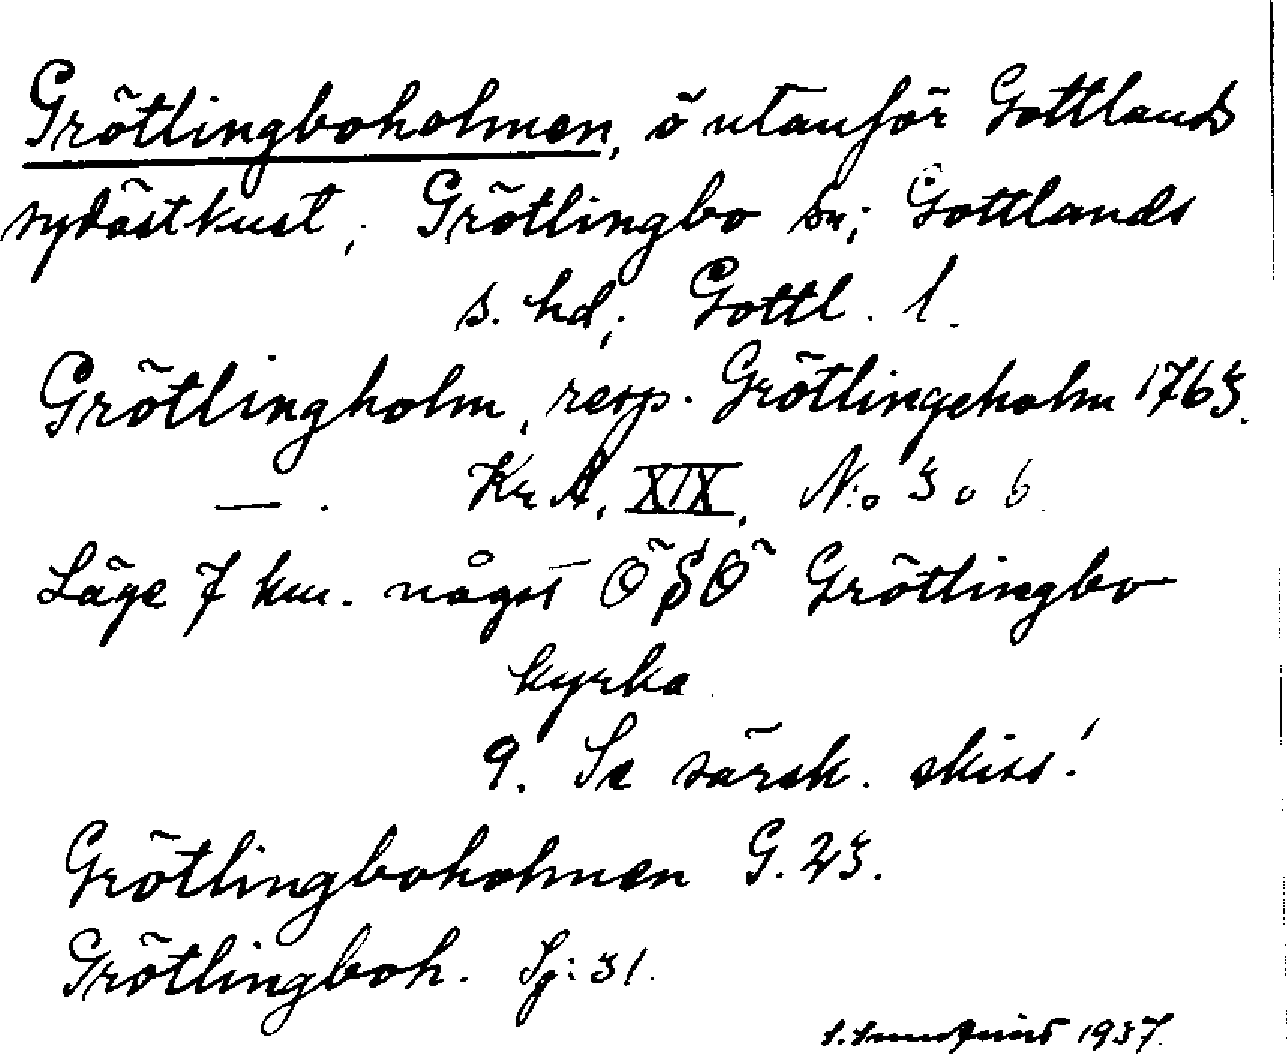 Grötlingboholmen, ö utanför Gottlands
sydöstkust; Grötlingbo sn; Gottlands
s. hd; Gottl. l.
Grötlingholm, resp. Grötlingeholm 1763.
— . Kr.A. XIX, N:o 3 o 6.
Läge 7 km. något ÖSÖ Grötlingbo
kyrka.
9. Se särsk. skiss!
Grötlingboholmen G. 23.
Grötlingboh. Sj: 31.
1937.